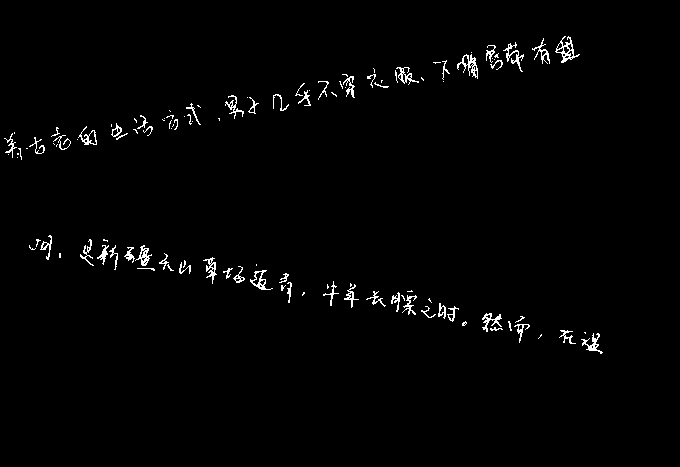 着古老的生活方式，男子几乎不穿衣服、下嘴唇带有盘
河，是新疆天山草场返青，牛羊长膘之时。然而，在温